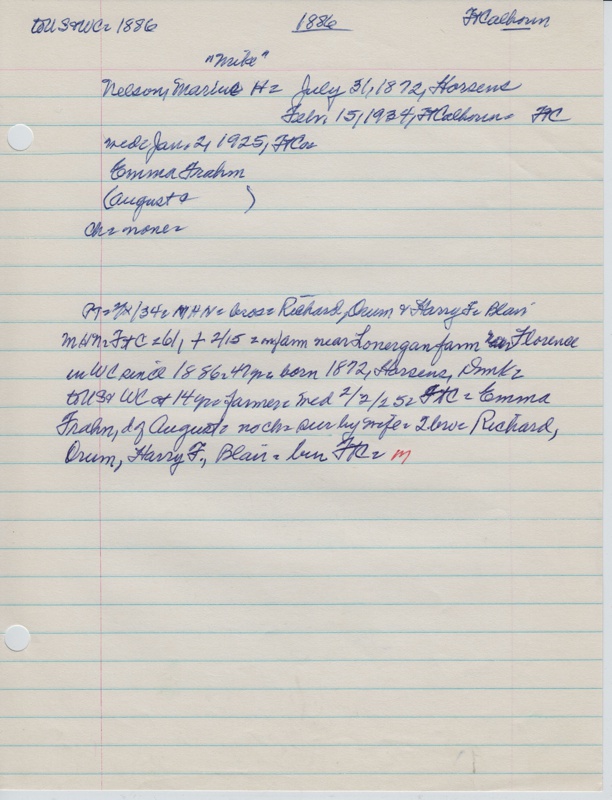 to US & WC = 1886 1886 Ft Calhoun
"Mike"
Nelson, Marius H = July 31, 1872, Horsens
Febr. 15, 1934, Ft Calhoun = FC
med = Jan. 2, 1925, Ft C =
Emma Frahm
(August & )
ch = none =
/34 = MHN = bros = Richard, Orum & Harry F = Blair
MHN = Ft C = 61, + 2/15 = on farm near Lonergan farm Florence
in WC since 1886 = 47 yr = born 1872, Horsens, Dmk =
to US & WC at 14 yr = farmer = med 2/2/25 = Ft C = Emma
Frahn, d of August = no ch = sur by wife = 2 bro = Richard,
Orum, Harry F., Blair = bur Ft C = M